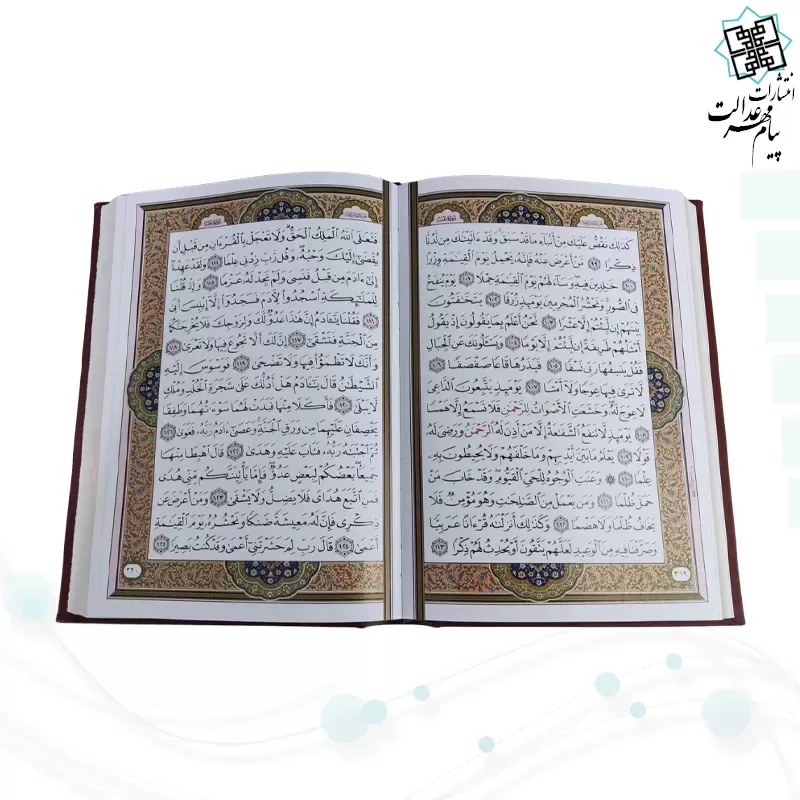 انتشارات
پیام مهر عدالت
كَذَٰلِكَ نَقُصُّ عَلَيْكَ مِنْ أَنْبَاءِ مَا قَدْ سَبَقَ وَقَدْ ءَاتَيْنَٰكَ مِنْ لَدُنَّا
ذِكْرًا ٩٩ مَنْ أَعْرَضَ عَنْهُ فَإِنَّهُ يَحْمِلُ يَوْمَ الْقِيَٰمَةِ وِزْرًا
١٠٠ خَٰلِدِينَ فِيهِ وَسَاءَ لَهُمْ يَوْمَ الْقِيَٰمَةِ حِمْلًا ١٠١ يَوْمَ يُنْفَخُ
فِي الصُّورِ وَنَحْشُرُ الْمُجْرِمِينَ يَوْمَئِذٍ زُرْقًا ١٠٢ يَتَخَٰفَتُونَ
بَيْنَهُمْ إِنْ لَبِثْتُمْ إِلَّا عَشْرًا ١٠٣ نَحْنُ أَعْلَمُ بِمَا يَقُولُونَ إِذْ يَقُولُ
أَمْثَلُهُمْ طَرِيقَةً إِنْ لَبِثْتُمْ إِلَّا يَوْمًا ١٠٤ وَيَسْـَٔلُونَكَ عَنِ الْجِبَالِ
فَقُلْ يَنْسِفُهَا رَبِّي نَسْفًا ١٠٥ فَيَذَرُهَا قَاعًا صَفْصَفًا ١٠٦
لَا تَرَىٰ فِيهَا عِوَجًا وَلَا أَمْتًا ١٠٧ يَوْمَئِذٍ يَتَّبِعُونَ الدَّاعِيَ
لَا عِوَجَ لَهُ وَخَشَعَتِ الْأَصْوَاتُ لِلرَّحْمَٰنِ فَلَا تَسْمَعُ إِلَّا هَمْسًا
١٠٨ يَوْمَئِذٍ لَا تَنْفَعُ الشَّفَٰعَةُ إِلَّا مَنْ أَذِنَ لَهُ الرَّحْمَٰنُ وَرَضِيَ لَهُ
قَوْلًا ١٠٩ يَعْلَمُ مَا بَيْنَ أَيْدِيهِمْ وَمَا خَلْفَهُمْ وَلَا يُحِيطُونَ بِهِ
عِلْمًا ١١٠ وَعَنَتِ الْوُجُوهُ لِلْحَيِّ الْقَيُّومِ وَقَدْ خَابَ مَنْ
حَمَلَ ظُلْمًا ١١١ وَمَنْ يَعْمَلْ مِنَ الصَّٰلِحَٰتِ وَهُوَ مُؤْمِنٌ فَلَا
يَخَافُ ظُلْمًا وَلَا هَضْمًا ١١٢ وَكَذَٰلِكَ أَنْزَلْنَٰهُ قُرْءَانًا عَرَبِيًّا
وَصَرَّفْنَا فِيهِ مِنَ الْوَعِيدِ لَعَلَّهُمْ يَتَّقُونَ أَوْ يُحْدِثُ لَهُمْ ذِكْرًا ١١٣
٣١٩
فَتَعَٰلَى اللَّهُ الْمَلِكُ الْحَقُّ وَلَا تَعْجَلْ بِالْقُرْءَانِ مِنْ قَبْلِ أَنْ
يُقْضَىٰ إِلَيْكَ وَحْيُهُ وَقُلْ رَبِّ زِدْنِي عِلْمًا ١١٤ وَلَقَدْ عَهِدْنَا
إِلَىٰ ءَادَمَ مِنْ قَبْلُ فَنَسِيَ وَلَمْ نَجِدْ لَهُ عَزْمًا ١١٥ وَإِذْ قُلْنَا
لِلْمَلَٰئِكَةِ اسْجُدُوا لِءَادَمَ فَسَجَدُوا إِلَّا إِبْلِيسَ أَبَىٰ
١١٦ فَقُلْنَا يَٰـَٔادَمُ إِنَّ هَٰذَا عَدُوٌّ لَكَ وَلِزَوْجِكَ فَلَا يُخْرِجَنَّكُمَا
مِنَ الْجَنَّةِ فَتَشْقَىٰ ١١٧ إِنَّ لَكَ أَلَّا تَجُوعَ فِيهَا وَلَا تَعْرَىٰ ١١٨
وَأَنَّكَ لَا تَظْمَؤُا فِيهَا وَلَا تَضْحَىٰ ١١٩ فَوَسْوَسَ إِلَيْهِ
الشَّيْطَٰنُ قَالَ يَٰـَٔادَمُ هَلْ أَدُلُّكَ عَلَىٰ شَجَرَةِ الْخُلْدِ وَمُلْكٍ
لَا يَبْلَىٰ ١٢٠ فَأَكَلَا مِنْهَا فَبَدَتْ لَهُمَا سَوْءَٰتُهُمَا وَطَفِقَا
يَخْصِفَانِ عَلَيْهِمَا مِنْ وَرَقِ الْجَنَّةِ وَعَصَىٰ ءَادَمُ رَبَّهُ فَغَوَىٰ ١٢١
ثُمَّ اجْتَبَٰهُ رَبُّهُ فَتَابَ عَلَيْهِ وَهَدَىٰ ١٢٢ قَالَ اهْبِطَا مِنْهَا
جَمِيعًا بَعْضُكُمْ لِبَعْضٍ عَدُوٌّ فَإِمَّا يَأْتِيَنَّكُمْ مِنِّي هُدًى
فَمَنِ اتَّبَعَ هُدَايَ فَلَا يَضِلُّ وَلَا يَشْقَىٰ ١٢٣ وَمَنْ أَعْرَضَ عَنْ
ذِكْرِي فَإِنَّ لَهُ مَعِيشَةً ضَنْكًا وَنَحْشُرُهُ يَوْمَ الْقِيَٰمَةِ
أَعْمَىٰ ١٢٤ قَالَ رَبِّ لِمَ حَشَرْتَنِي أَعْمَىٰ وَقَدْ كُنْتُ بَصِيرًا ١٢٥
٣٢٠